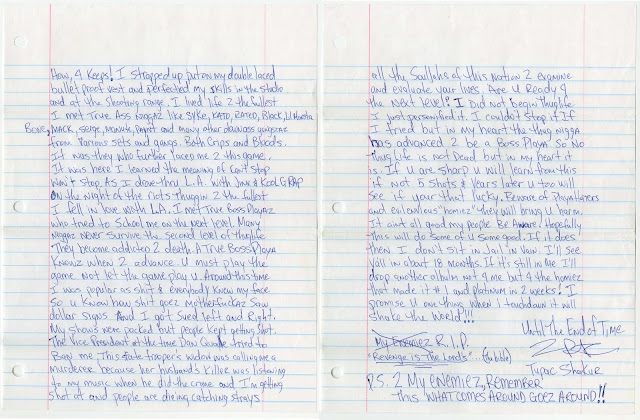 How, 4 Keeps! I strapped up put on my double laced
bullet proof vest and perfected my skills in the studio
and at the shooting range. I lived life 2 the fullest
I met True Ass Niggaz like Syke, Kato, Ratlo, Black, Lil Monsta
Bone, Mack, Serge, Monsta, and many other down ass gangstaz
from various sets and gangs. Both Crips and Bloods.
It was they who further laced me 2 this game.
It was here I learned the meaning of can't stop
won't stop. As I drove thru L.A. with and Kool G Rap
on the night of the riots thuggin 2 the fullest
I fell in love with L.A. I met True Boss Playaz
who tried to School me on the Next level. Many
Niggaz never survive the second level of thuglife
They become addicted 2 death. A True Boss Playa
Knowz when 2 advance. U must play the
game not let the game play U. Around this time
I was popular as shit & everybody knew my face
So u know how shit goez motherfuckaz saw
dollar signs and I got sued left and Right.
My shows were packed but people kept getting shot.
The Vice President at the time Dan Quayle tried to
Ban me This state trooper's widow was calling me a
murderer because her husband's killer was listening
to my music when he did the crime and I'm getting
shot at and people are dieing catching strays
all the Souljahs of this nation 2 examine
and evaluate your lives. Are U Ready 4
the next level? I Did not begin thuglife
I just personified it. I couldn't stop it if
I tried but in my heart the thug nigga
has advanced 2 be a Boss Playa So No
thug life is not Dead but in my heart it
is. If U are sharp U will learn from this
if not 5 shots & years later U too will
see if your that lucky. Beware of playa haters
and evil envious "homiez" they will bring U harm.
It aint all good my people Be Aware. Hopefully
this will do some of U some good. If it does
then I don't sit in Jail in vain. I'll see
Yall in about 18 months. If it's still in Me I'll
drop another album not 4 me but 4 the homiez
that made it #1 and platinum in 2 weeks! I
promise U one thing when I touchdown it will
shake the World!!!
Until The End of Time
My Enemiez R.I.P.
"Revenge is The Lord's"
Tupac Shakur
P.S. 2 My Enemiez, Remember
this WHAT COMES AROUND GOEZ AROUND!!